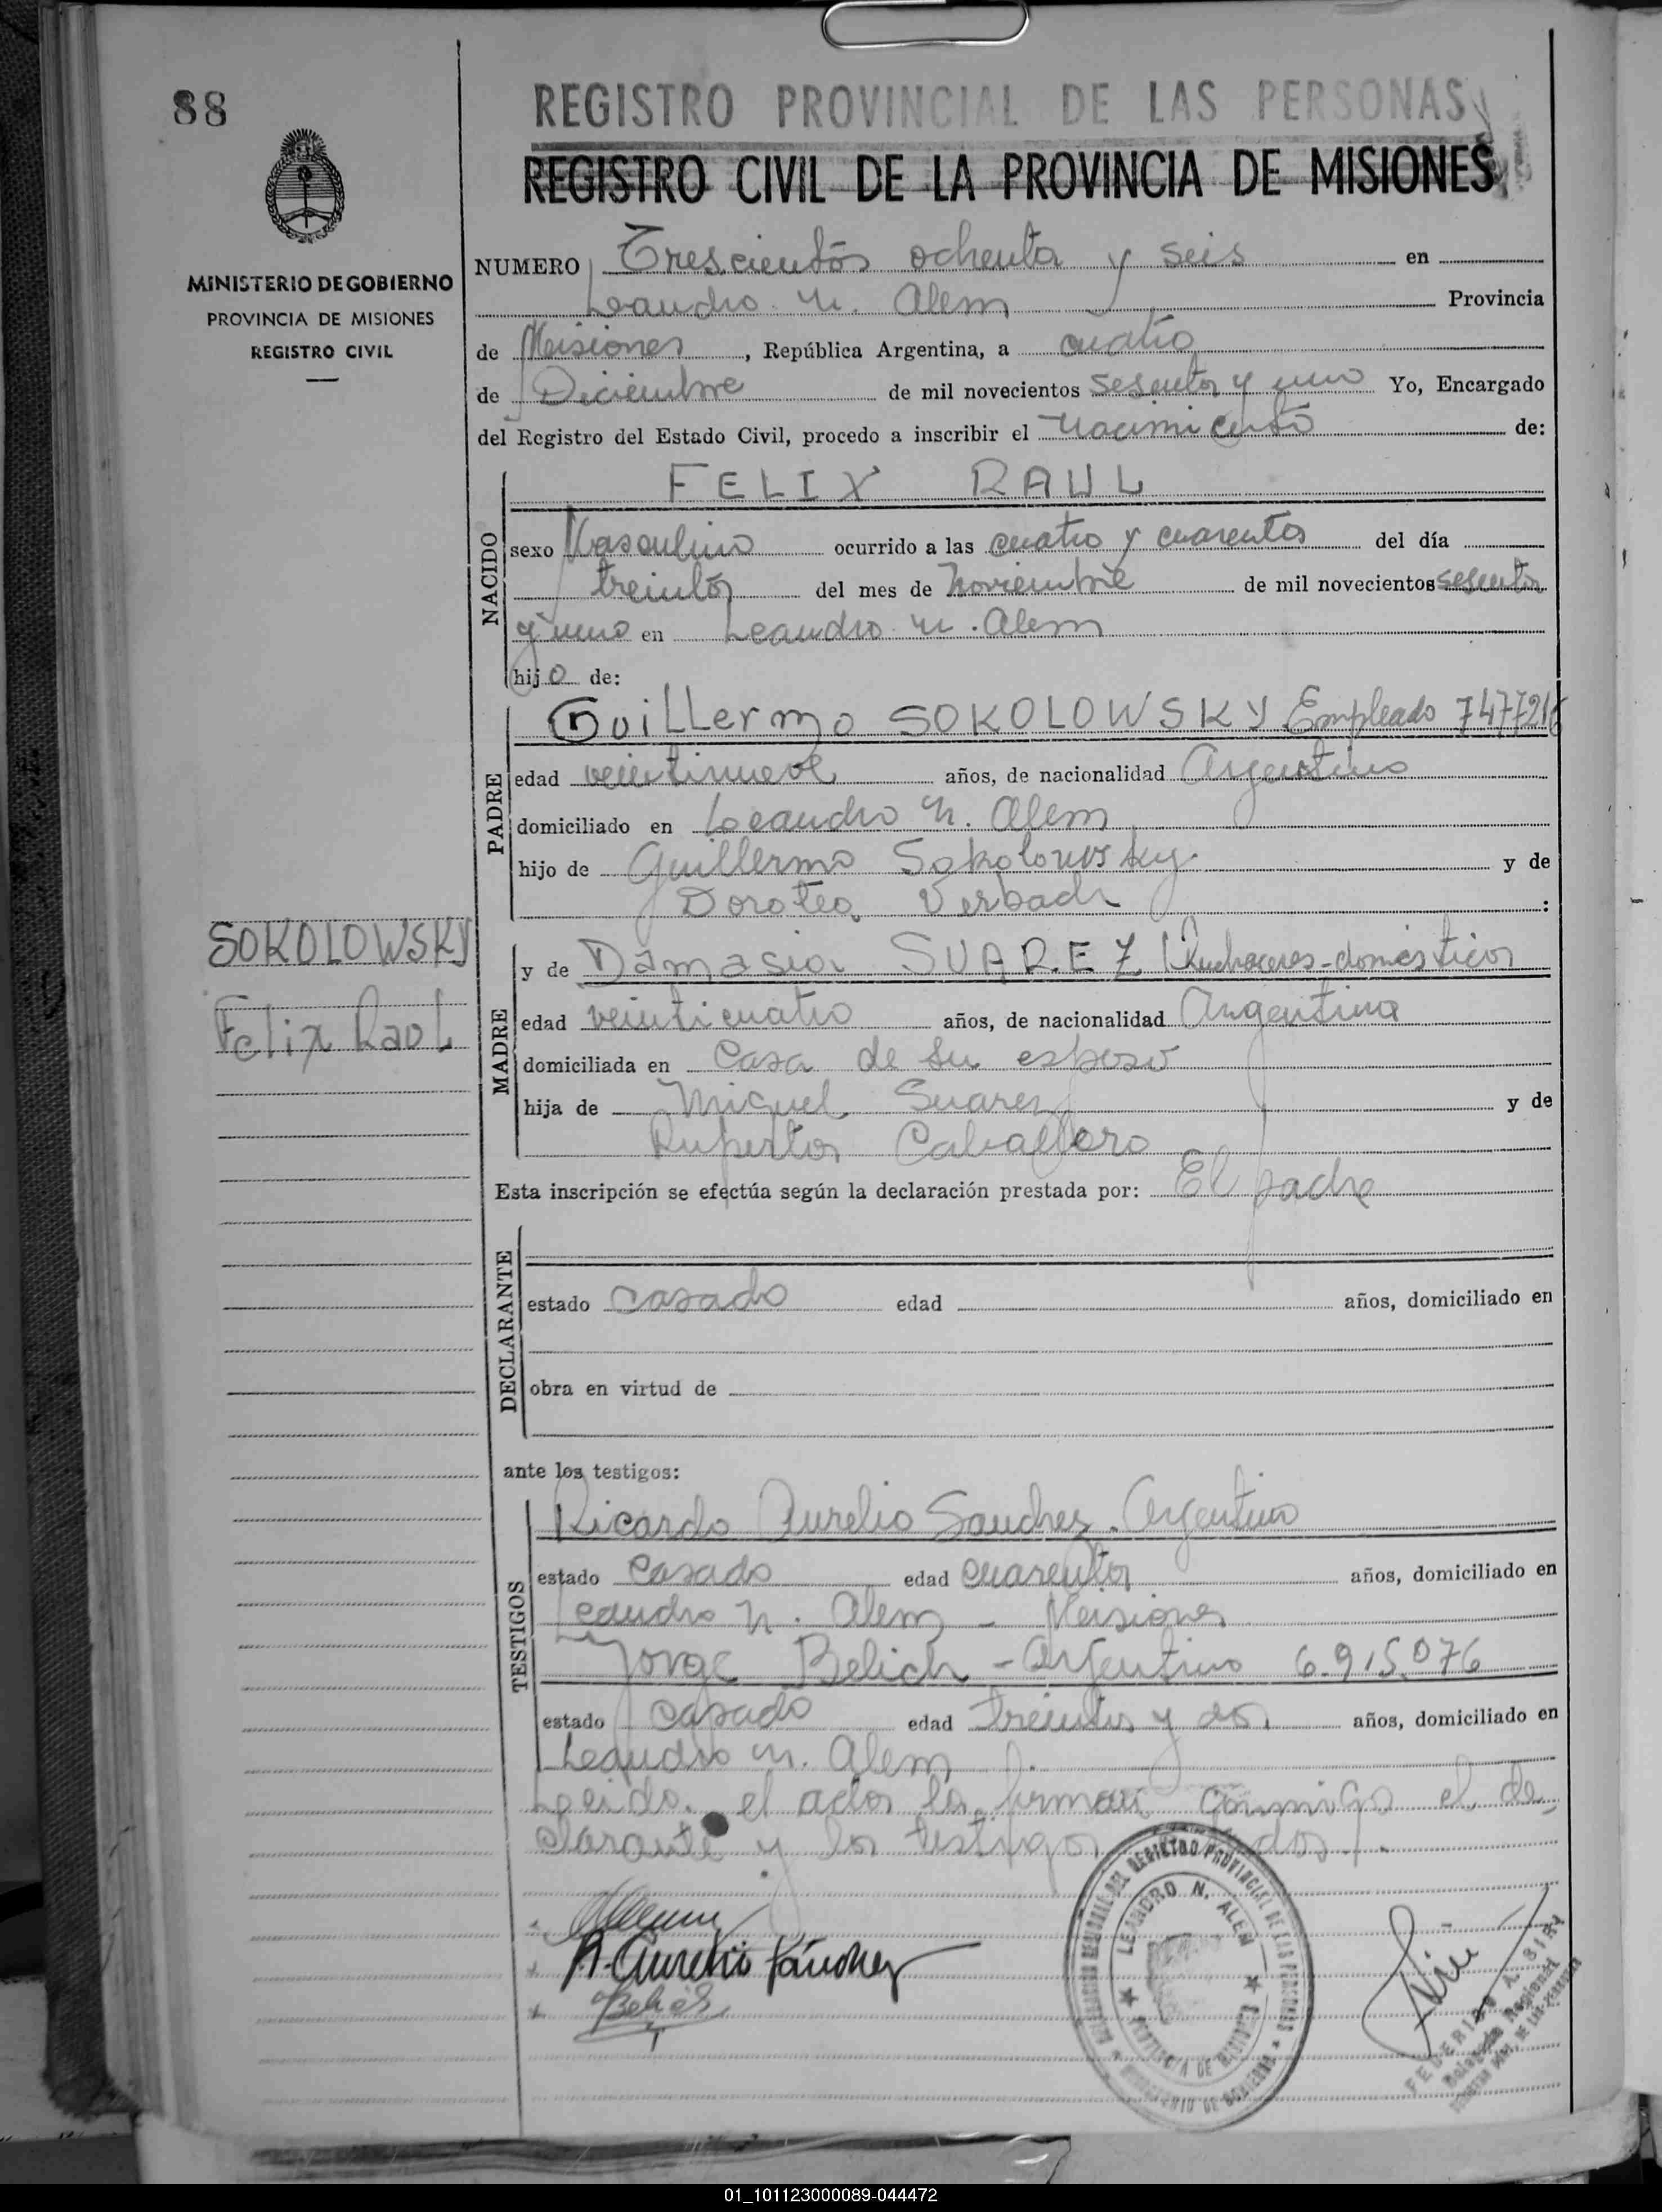 88
REGISTRO PROVINCIAL DE LAS PERSONAS
REGISTRO CIVIL DE LA PROVINCIA DE MISIONES
MINISTERIO DE GOBIERNO
PROVINCIA DE MISIONES
REGISTRO CIVIL
NUMERO Trescientos ochenta y seis en
Leandro N. Alem Provincia
de Misiones, República Argentina, a cuatro
de Diciembre de mil novecientos sesenta y uno Yo, Encargado
del Registro del Estado Civil, procedo a inscribir el nacimiento de:
FELIX RAUL
NACIDO
sexo Masculino ocurrido a las cuatro y cuarenta del día
treinta del mes de Noviembre de mil novecientos sesenta
y uno en Leandro N. Alem
hijo de:
PADRE
Guillermo SOKOLOWSKY Empleado 7477216
edad veintinueve años, de nacionalidad Argentino
domiciliado en Leandro N. Alem
hijo de Guillermo Sokolowsky y de
Dorotea Verbach :
SOKOLOWSKY
Felix Raul
MADRE
y de Damasia SUAREZ Quehaceres-domésticos
edad veinticuatro años, de nacionalidad Argentina
domiciliada en Casa de su esposo
hija de Miguel Suarez y de
Ruperta Caballero
Esta inscripción se efectúa según la declaración prestada por: El padre
DECLARANTE
estado casado edad años, domiciliado en
obra en virtud de
ante los testigos:
TESTIGOS
Ricardo Aurelio Sanchez. Argentino
estado Casado edad cuarenta años, domiciliado en
Leandro N. Alem - Misiones
Jorge Belich - Argentino 6.915.076
estado casado edad treinta y dos años, domiciliado en
Leandro N. Alem.
Leida el acta la firman conmigo el de-
clarante y los testigos
R. Aurelio Sánchez
Belich
DELEGACION REGIONAL DEL REGISTRO PROVINCIAL DE LAS PERSONAS
MINISTERIO DE GOBIERNO
LEANDRO N. ALEM
PROVINCIA DE MISIONES
FEDERICO A. SIRY
Delegado Regional
01_101123000089-044472